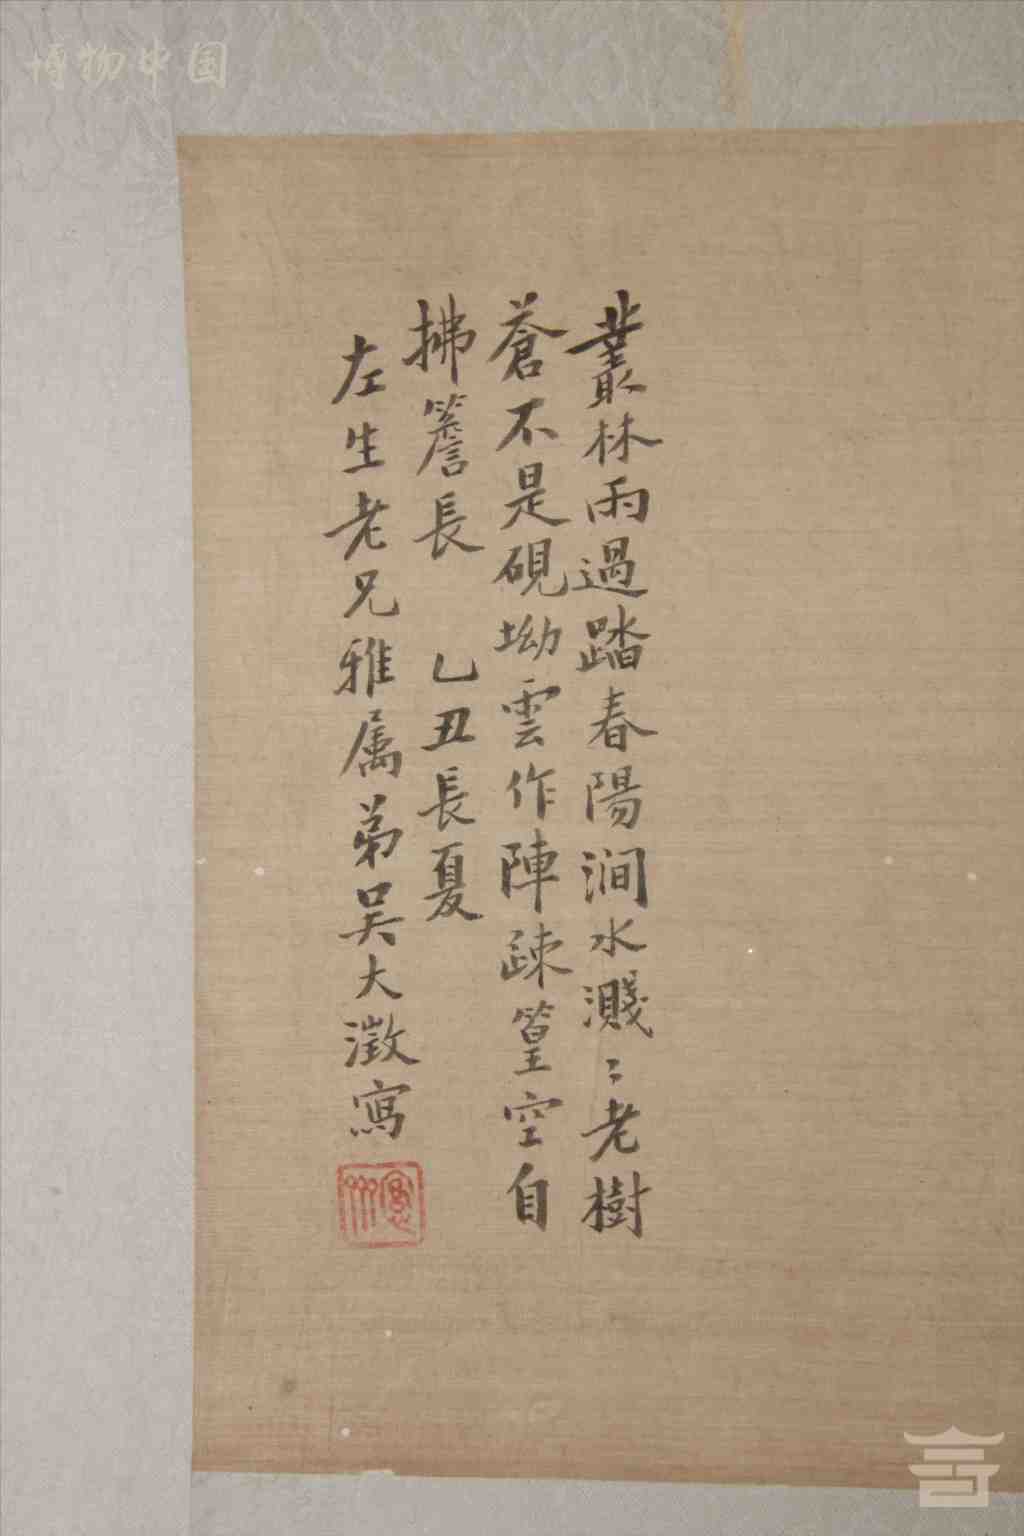 博物中国
叢林雨過踏春陽澗水濺〻老樹
蒼不是硯坳雲作陣疎篁空自
拂簷長　乙丑長夏
左生老兄雅属弟吴大澂寫